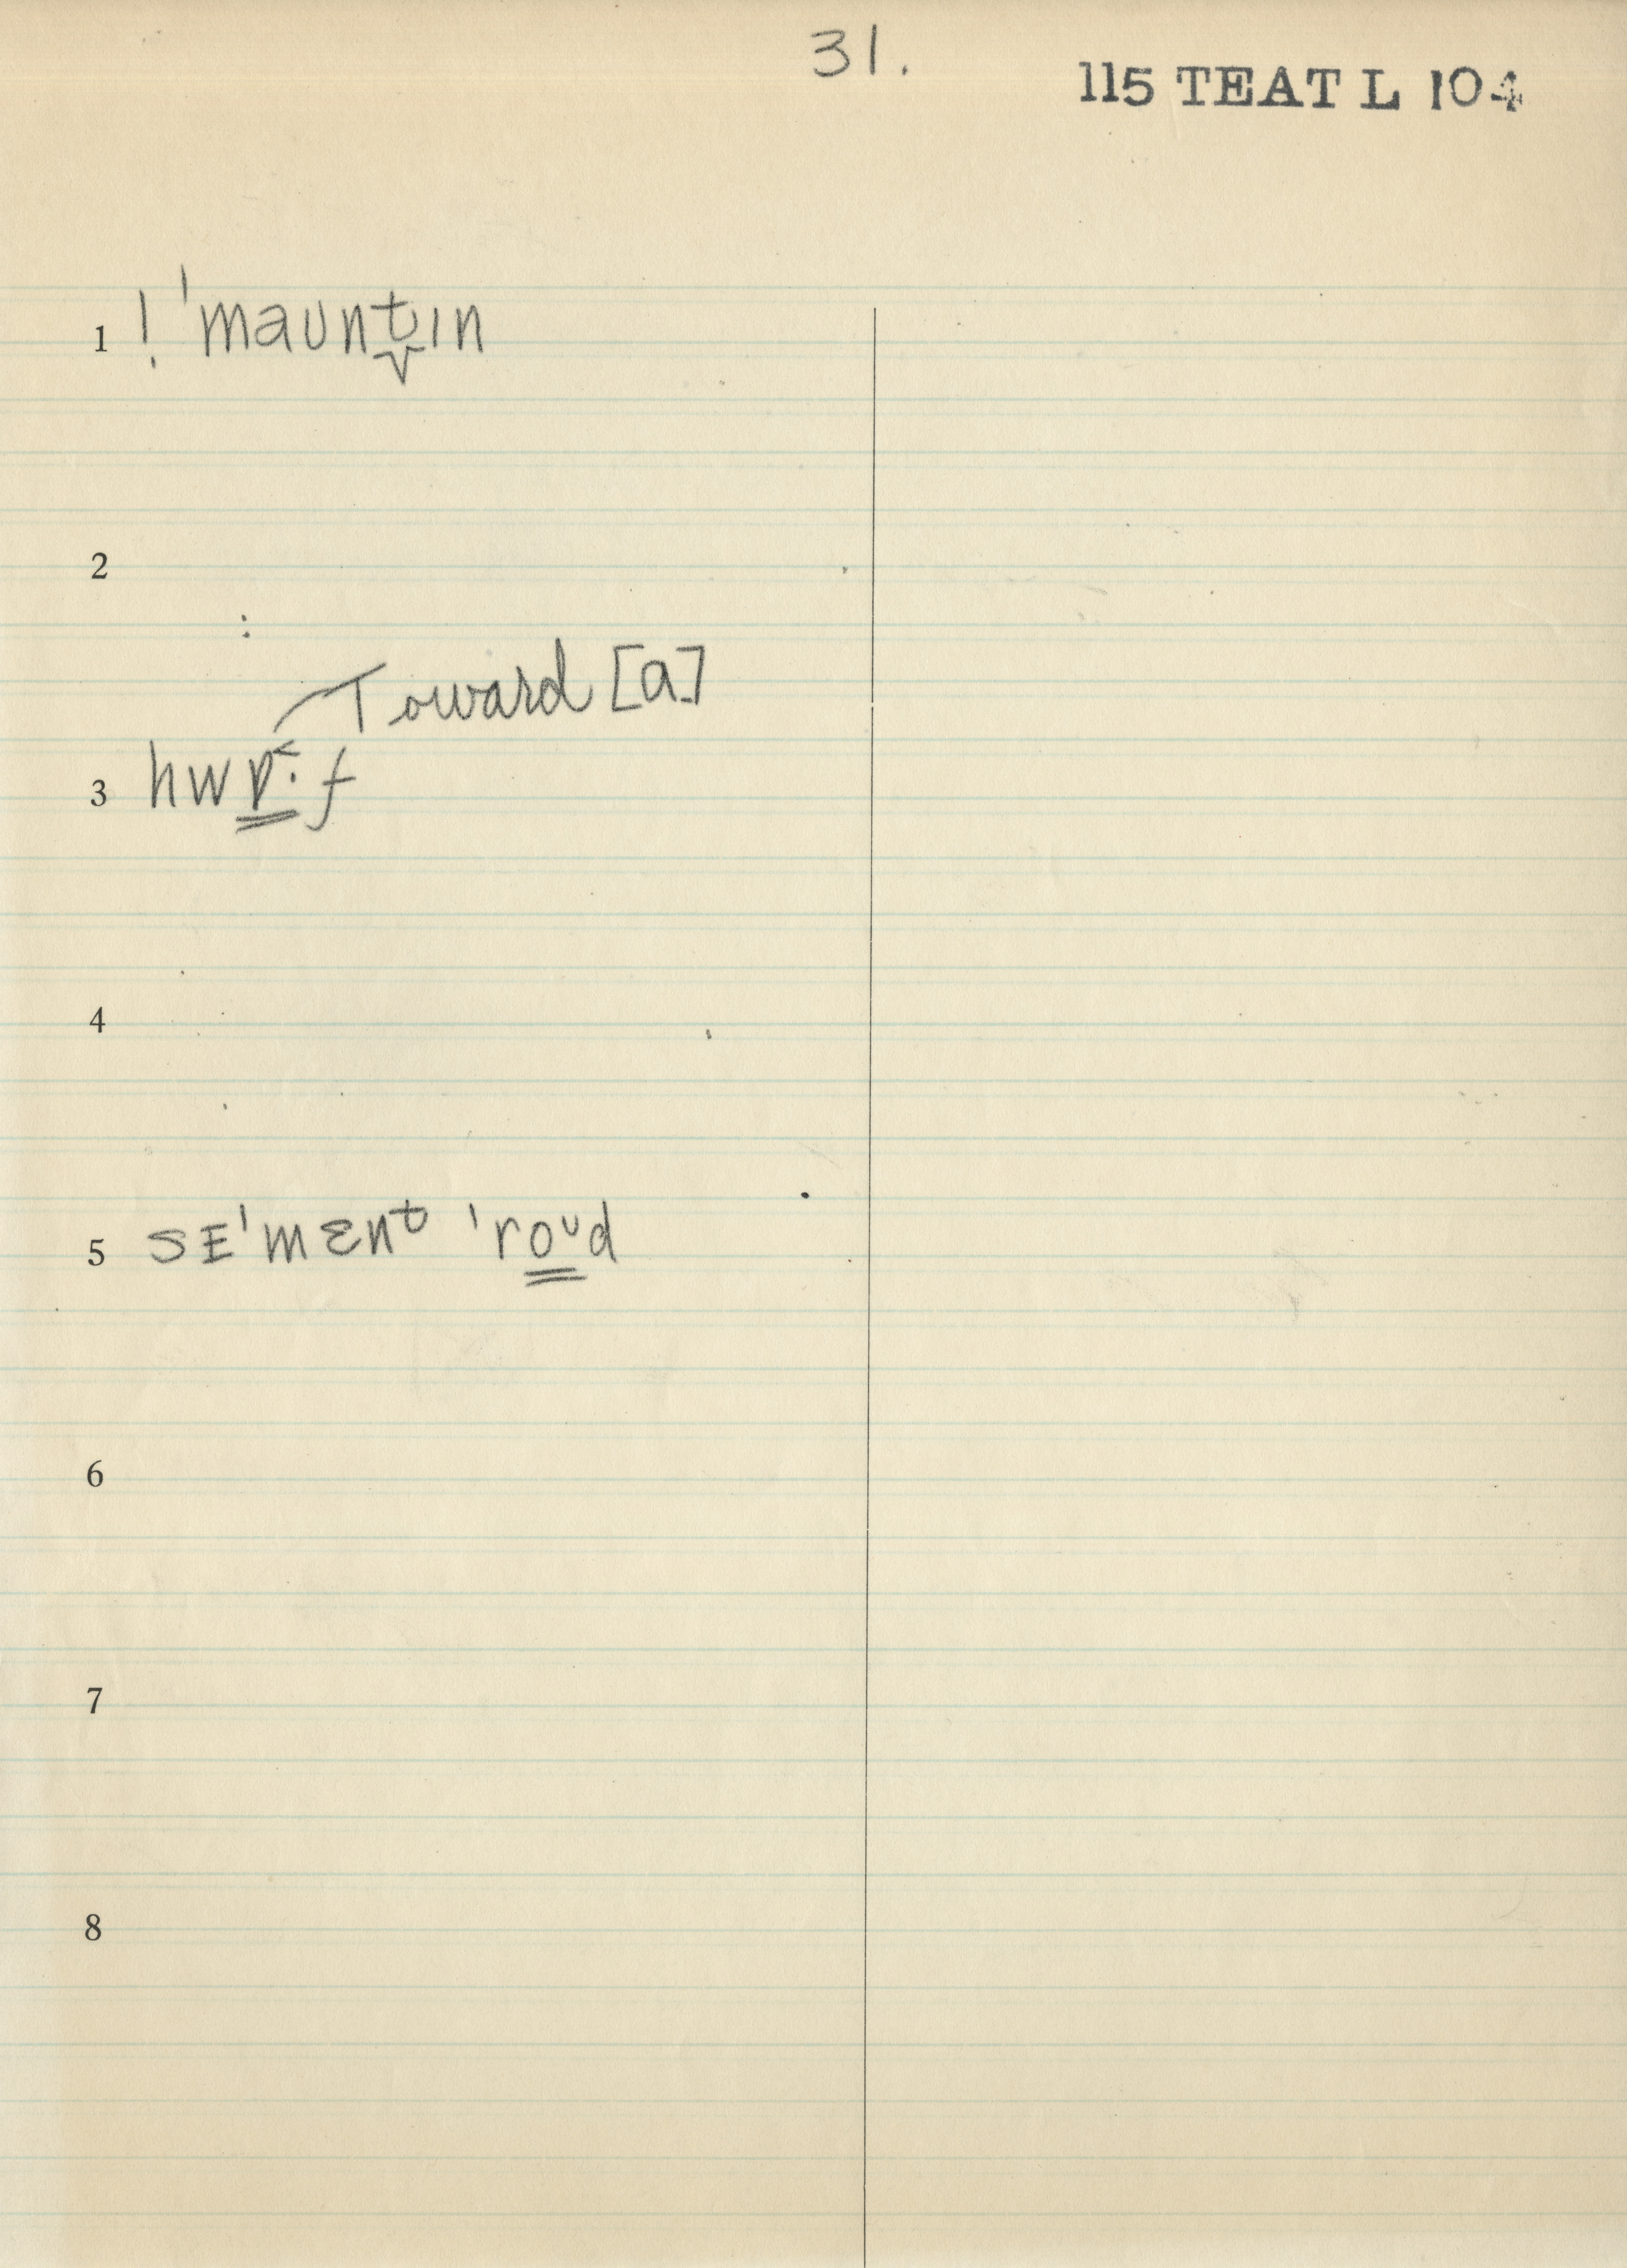 31.
115 TEAT L 104
1 ! ˈmaʊnt̬ɪn
2
Toward [a]
3 hwɒ˂·f
4
5 sɛˈmɛnᵗ ˈroᶷd
6
7
8